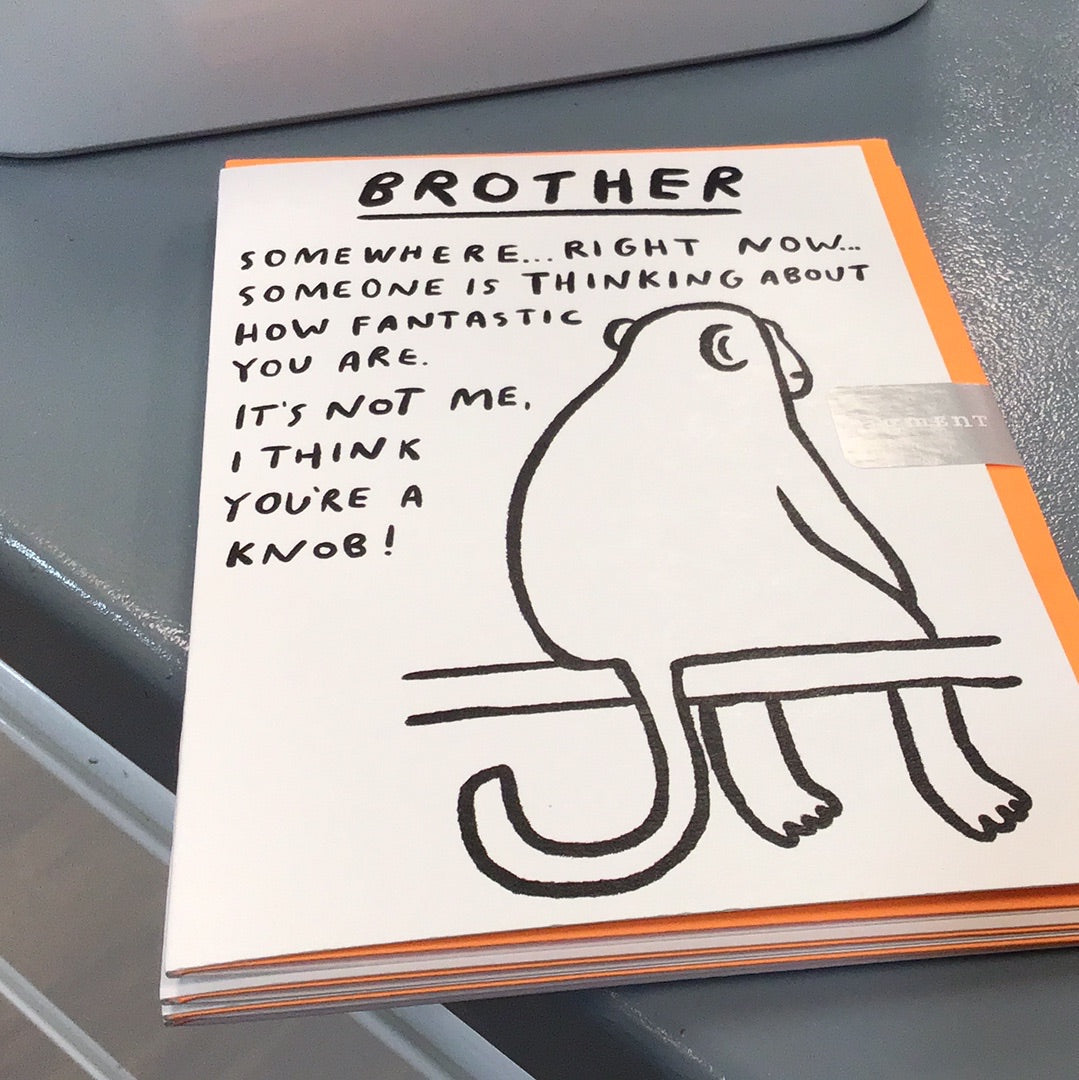 BROTHER
SOMEWHERE...RIGHT NOW...
SOMEONE IS THINKING ABOUT
HOW FANTASTIC
YOU ARE.
IT'S NOT ME,
I THINK
YOU'RE A
KNOB!